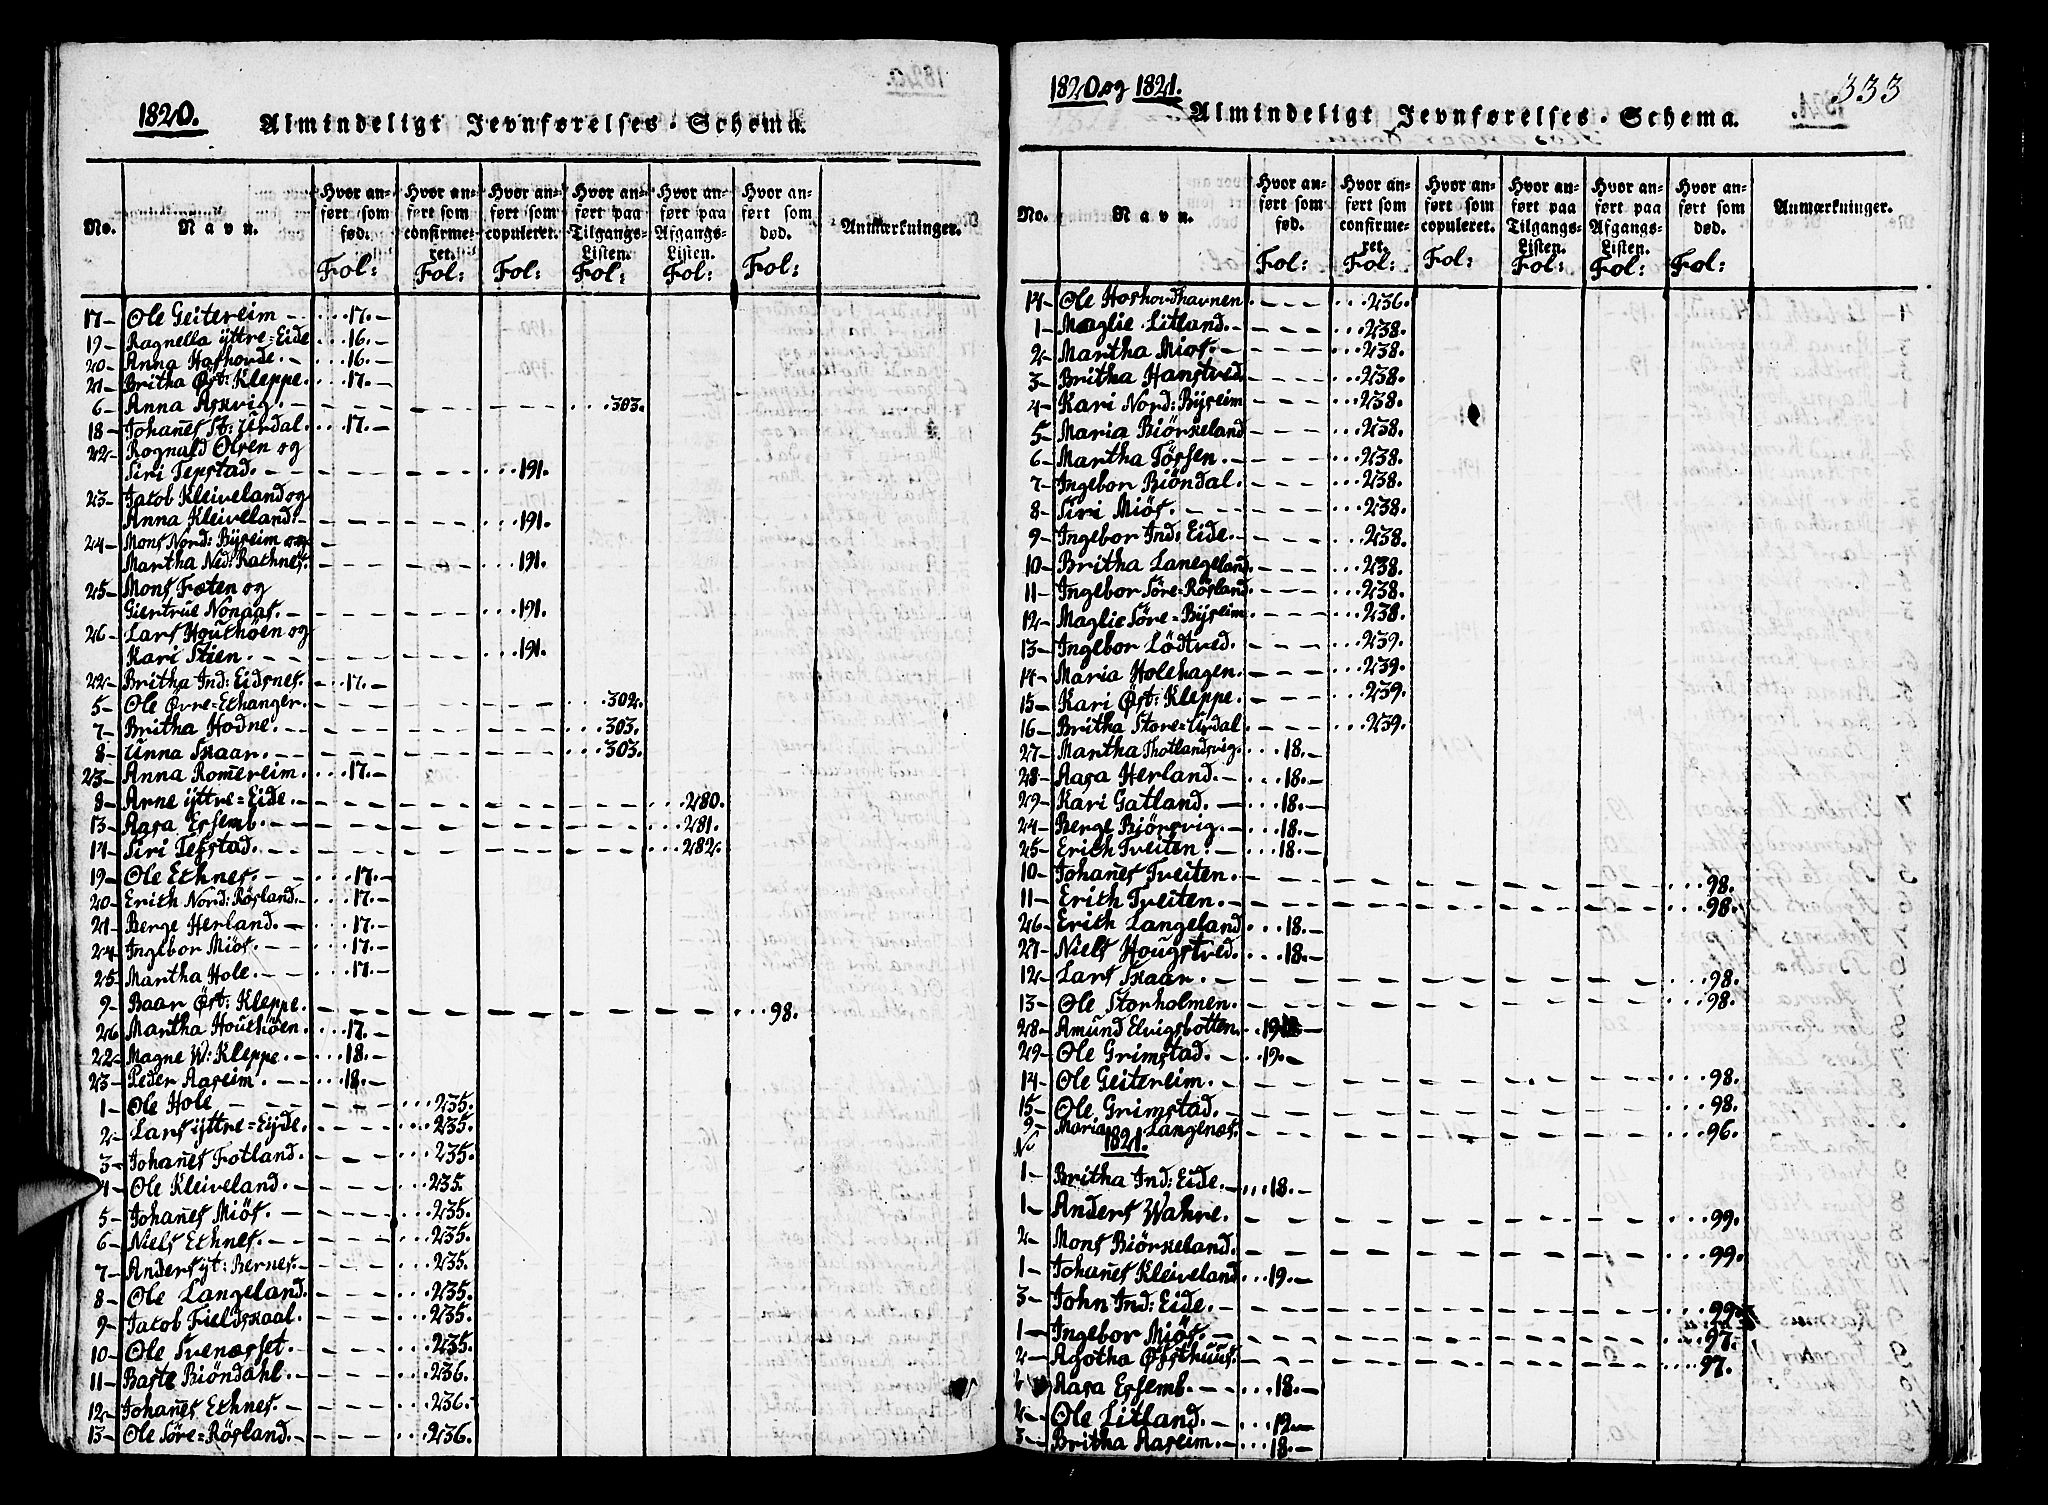 1820.
Almindeligt Jevnførelses-Schema.
No.
Navn.
Hvor an-
ført som
fød.
Fol:
Hvor an-
ført som
confirme-
ret.
Fol:
Hvor an-
ført som
copuleret.
Fol:
Hvor an-
ført paa
Tilgangs-
Listen.
Fol:
Hvor an-
ført paa
Afgangs-
Listen.
Fol:
Hvor an-
ført som
død.
Fol:
Anmærkninger.
17 Ole Geitereim 17.
19 Ragnella ÿttre=Eide 16.
20 Anna Hafhovde. 16.
21 Britha Øst: Kleppe. 17.
6 Anna Askvig. 303.
18 Johañes St: Urdal. 17.
22 Rognald Olsen og
Siri Tepstad. 191.
23 Jacob Kleiveland og
Anna Kleiveland. 191.
24 Mons Nord: Bÿseim og
Martha Ned: Rathnes. 191.
25 Mons Fæten og
Giertrue Nonaas. 191.
26 Lars Houthöen og
Kari Stien. 191.
22 Britha Ind: Eidsnes. 17.
5 Ole Øvre=Ethanger. 302.
7 Britha Hodne. 303.
8 Unna Skaar. 303.
23 Anna Romereim. 17.
8 Arne ÿttre=Eide. 280.
13 Aasa Essemb. 281.
14 Siri Tepstad. 282.
19 Ole Ethnes. 17.
20 Erich Nord: Rösland. 17.
21 Berge Herland. 17.
24 Ingebor Miös. 17.
25 Martha Hole. 17.
9 Baar Øst: Kleppe. 98.
26 Martha Houthöen. 17.
22 Magne W: Kleppe. 18.
23 Peder Aaseim. 18.
1 Ole Hole 235.
2 Lars ÿttre=Eÿde. 235.
3 Johañes Fotland. 235.
4 Ole Kleiveland. 235.
5 Johañes Miös. 235.
6 Niels Ethnes. 235.
7 Anders ÿt: Bernes. 235.
8 Ole Langeland. 235.
9 Jacob Fieldskaal. 235.
10 Ole Svenæsset. 235.
11 Baste Biöndahl. 236.
12 Johañes Ethnes. 236.
13 Ole Söre=Rösland. 236.
1820 og 1821.
333
Almindeligt Jevnførelses-Schema.
No.
Navn.
Hvor an-
ført som
fød.
Fol:
Hvor an-
ført som
confirme-
ret.
Fol:
Hvor an-
ført som
copuleret.
Fol:
Hvor an-
ført paa
Tilgangs-
Listen.
Fol:
Hvor an-
ført paa
Afgangs-
Listen.
Fol:
Hvor an-
ført som
død.
Fol:
Anmærkninger.
14 Ole Hoshovdhavnen 236.
1 Maglie Litland. 238.
2 Martha Miös. 238.
3 Britha Hanstved. 238.
4 Kari Nord: Bÿseim 238.
5 Maria Biörkeland 238.
6 Martha Tössen. 238.
7 Ingebor Biöndal. 238.
8 Siri Miös. 238.
9 Ingebor Ind: Eide. 238.
10 Britha Langeland. 238.
11 Ingebor Söre=Rösland. 238.
12 Maglie Söre=Bÿseim. 238.
13 Ingebor Lödtved. 239.
14 Maria Holehagen. 239.
15 Kari Øst: Kleppe. 239.
16 Britha Store=Urdal. 239.
27 Martha Thotlandsvig. 18.
28 Aasa Herland. 18.
29 Kari Gatland. 18.
24 Berge Biörsvig. 18.
25 Erich Tveiten. 18.
10 Johañes Tveiten. 98.
11 Erich Tveiten. 98.
26 Erich Langeland 18.
27 Niels Hougstved. 18.
12 Lars Skaar. 98.
13 Ole Storholmen. 98.
28 Amund Elvigsbotten. 19
29 Ole Grimstad. 19.
14 Ole Geitereim. 98.
15 Ole Grimstad. 98.
9 Maria Langenæs. 96.
No 1821.
1 Britha Ind: Eide. 18.
1 Anders Wahre. 99.
2 Mons Biörkeland. 99.
1 Johañes Kleiveland 19.
3 John Ind: Eide. 99.
1 Ingebor Miös. 97.
2 Agotha Østhuus. 97.
2 Aasa Essemb. 18.
2 Ole Litland. 19
3 Britha Aaseim. 18.